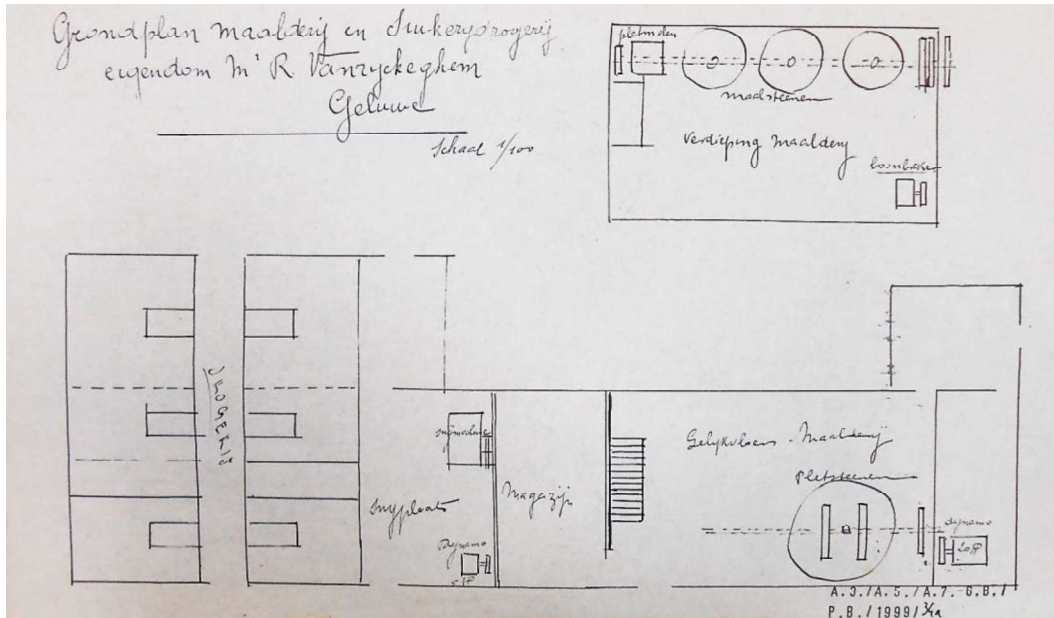 Grondplan maalderij en Suikerydrogerij
eigendom Mr R Vanryckeghem
Geluwe
Schaal 1/100
pletmolen
maalsteenen
Verdieping Maalderij
DROGERIJ
snymachine
Snyplaats
Dynamo
Magazijn
Gelijkvloers - Maalderij
Pletsteenen
dynamo
20 HP
A.3./A.5./A.7.-G.B./
P.B./1999/